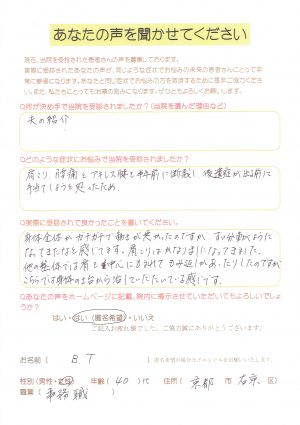 あなたの声を聞かせてください
現在、当院を受診された患者さんの声を募集しております。
実際に受診されたあなたの声が、同じような症状でお悩みの未来の患者さんにとって非
常に参考になります。あなたと同じ症状でお悩みの方を救済するために是非ご協力くださ
いませ。私たちにとってもお家の宝になります。ぜひともよろしくお願いします。
Q何が決め手で当院を受診されましたか?(当院を選んだ理由など)
夫の紹介
Qどのような症状にお悩みで当院を受診されましたか?
肩こり、腰痛とアキレス腱を半年前に断裂し後遺症が出る前に
手当てしようと思ったため。
Q実際に受診されて良かったことを書いてください。
身体全体がカチカチで動きが悪かったのですが、ずい分動くように
なってきたなと感じてます。肩こりはかなりましになってきました。
他の整体では肩を重中心にもまれてもみ返しがあったりしたのですが
こちらでは身体の土台から治していただいている感じです。
Qあなたの声をホームページに記載、院内に掲示させていただいてもよろしいでしょ
うか?
はい・はい(匿名希望)・いいえ
ご記入お疲れ様でした。ご協力誠にありがとうございます。
お名前( B.T )
匿名希望の場合はイニシャルをお願いします。
性別(男性・女性) 年齢(40)代 住所(京都 市 右京 区)
職業( 事務職 )